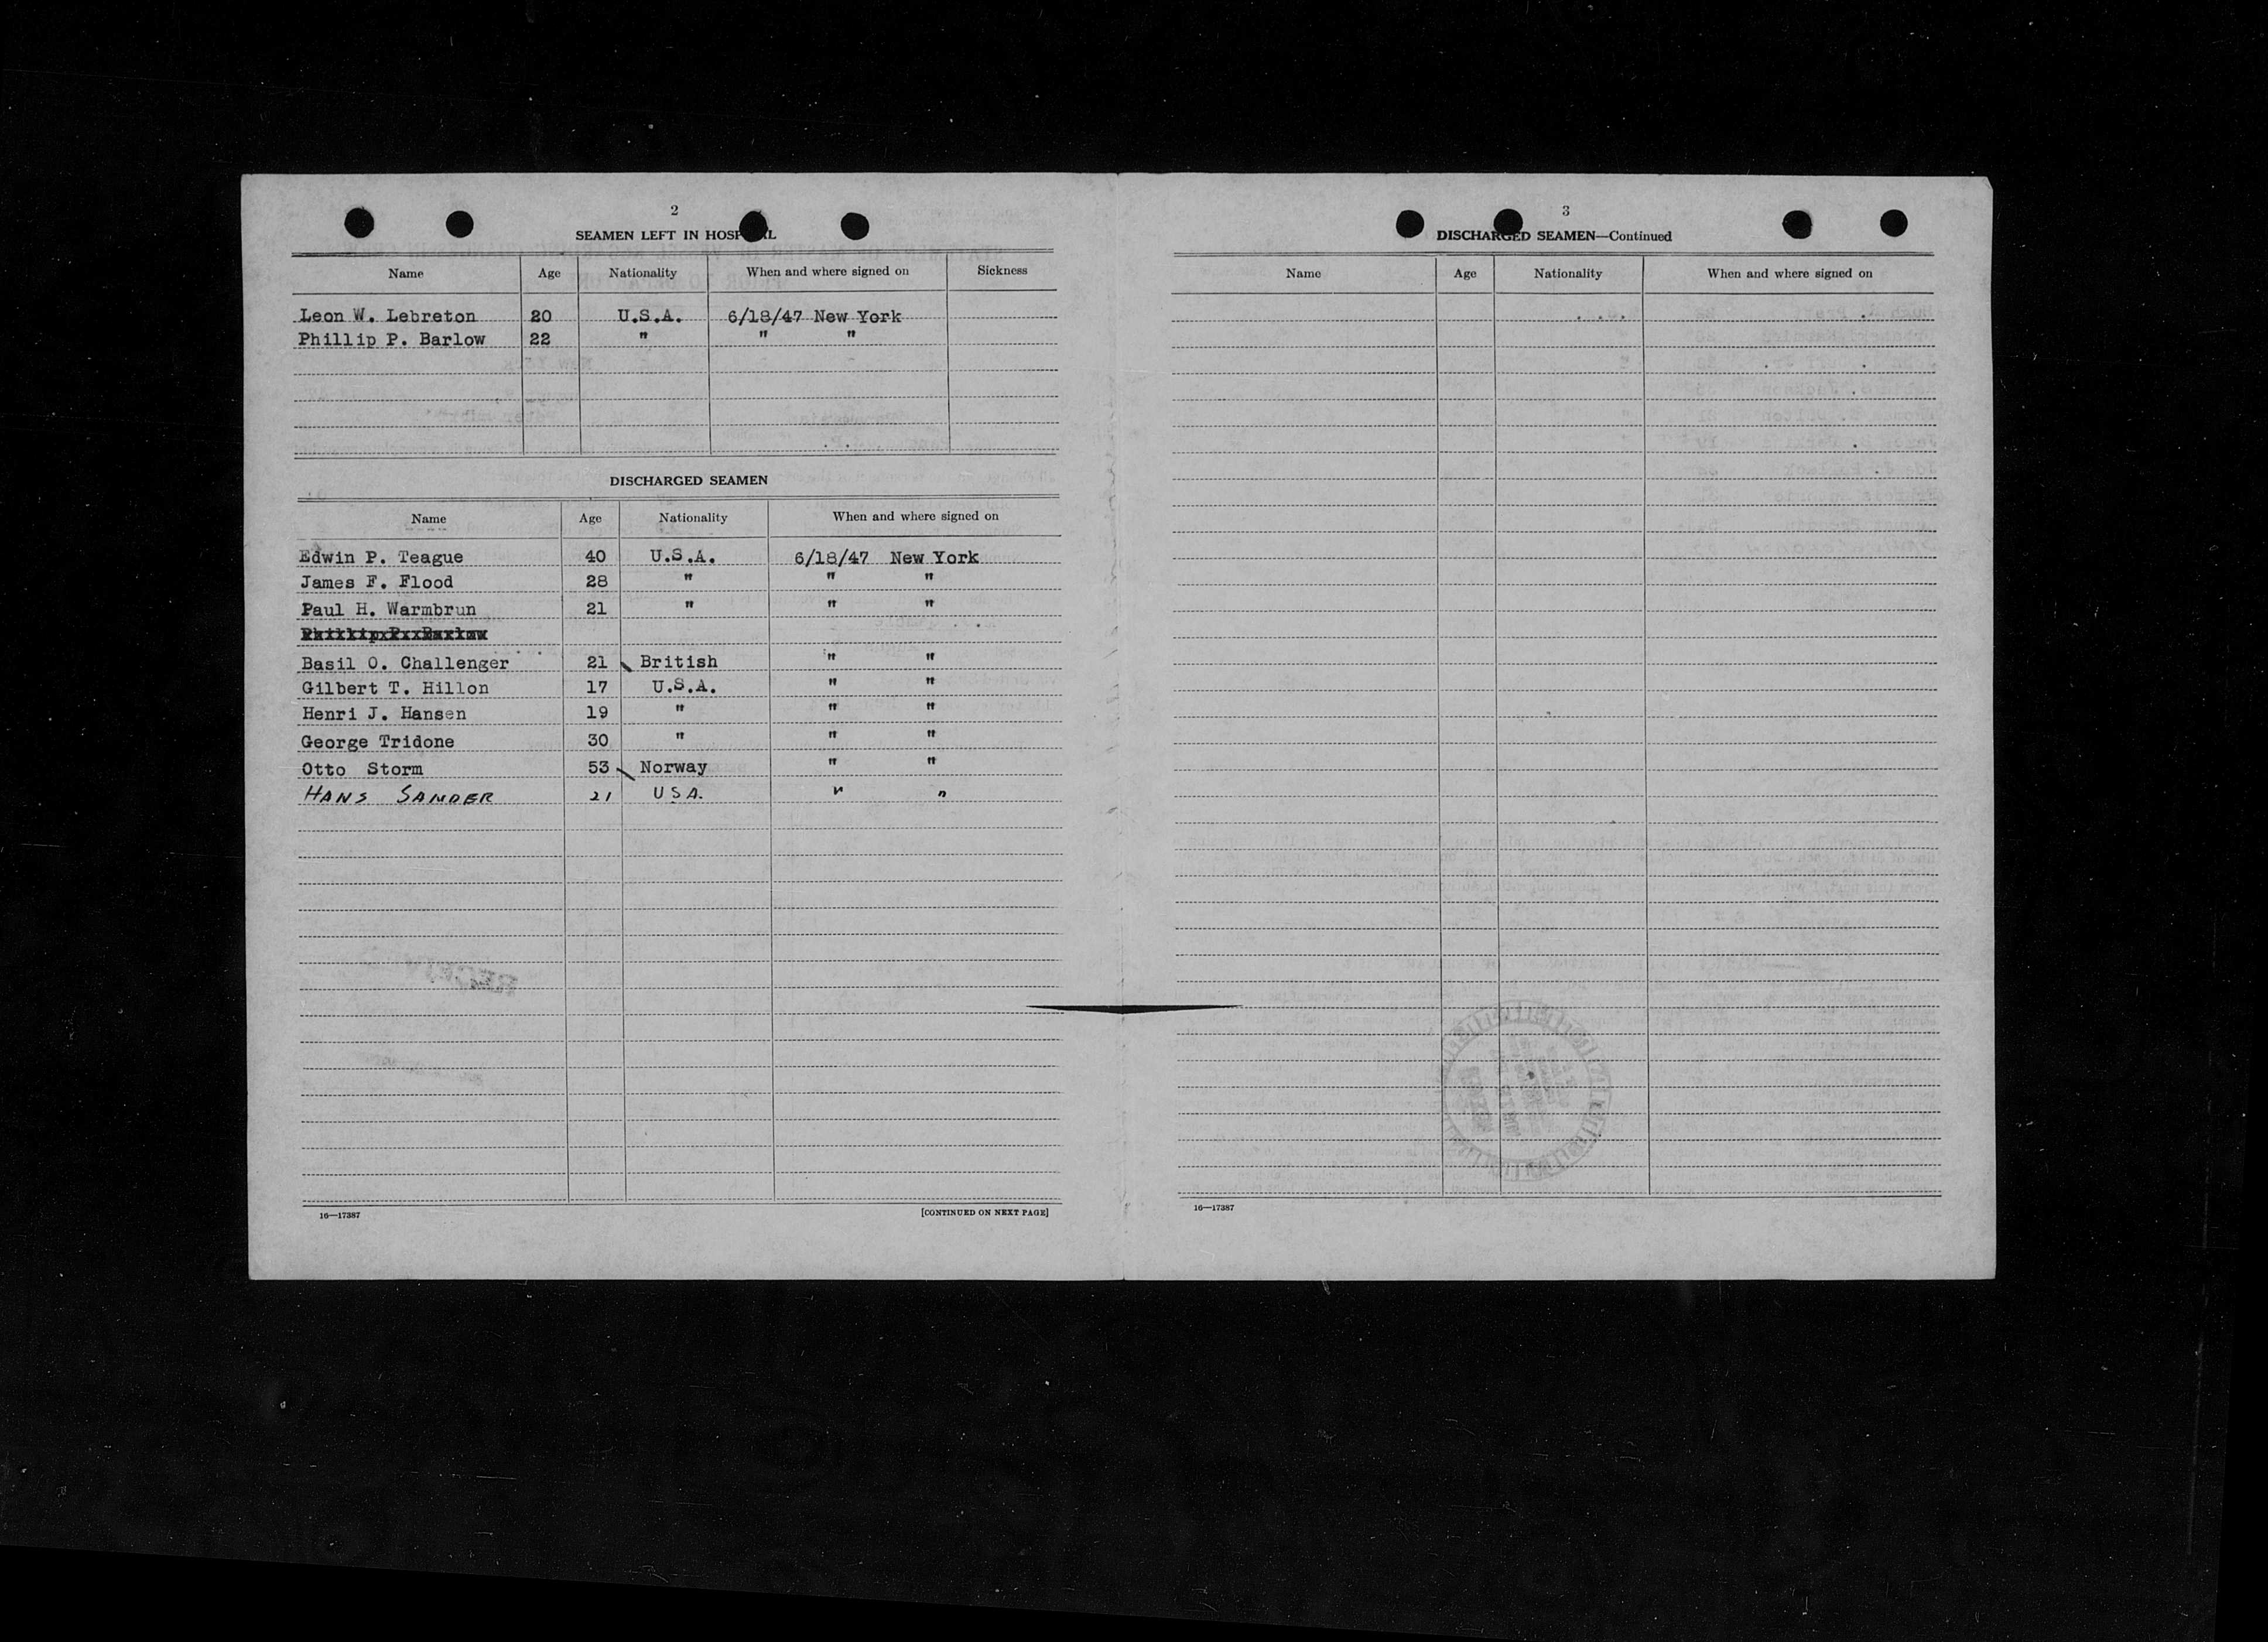 2
SEAMEN LEFT IN HOSPITAL
Name Age Nationality When and where signed on Sickness
Leon W. Lebreton 20 U.S.A. 6/18/47 New York
Phillip P. Barlow 22 " " "
DISCHARGED SEAMEN
Name Age Nationality When and where signed on
Edwin P. Teague 40 U.S.A. 6/18/47 New York
James F. Flood 28 " " "
Paul H. Warmbrun 21 " " "
Basil O. Challenger 21 British " "
Gilbert T. Hillon 17 U.S.A. " "
Henri J. Hansen 19 " " "
George Tridone 30 " " "
Otto Storm 53 Norway " "
HANS SANDER 21 USA. " "
16—17387 [CONTINUED ON NEXT PAGE]
3
DISCHARGED SEAMEN—Continued
Name Age Nationality When and where signed on
16—17387